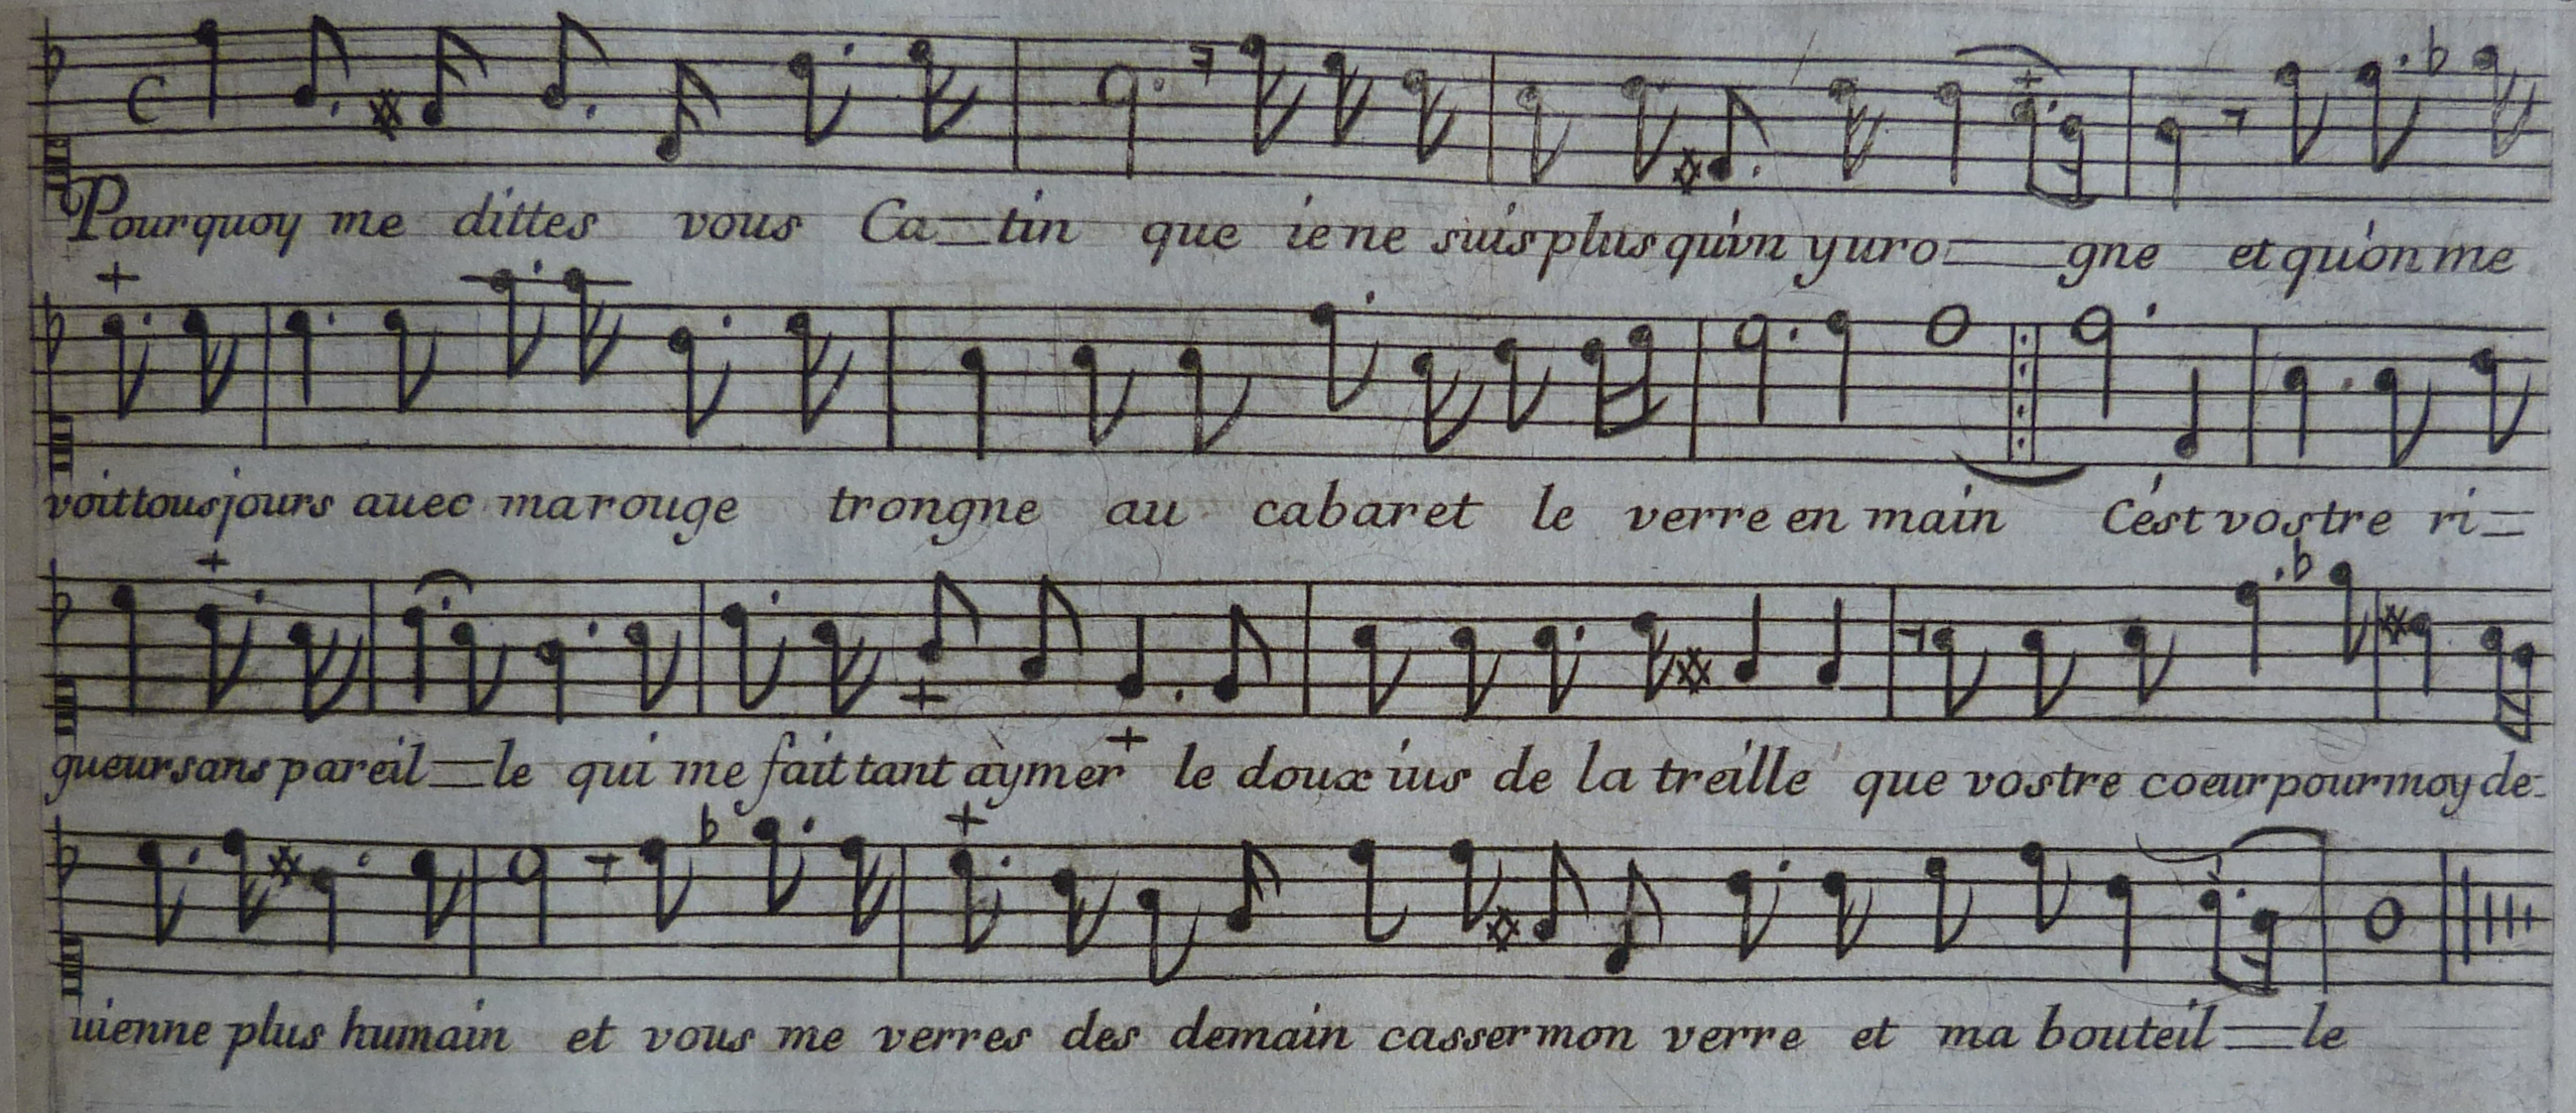 Pourquoy me dittes vous Ca=tin que ie ne suis plus qu'vn yuro=gne et qu'on me
voit tousjours auec ma rouge trongne au cabaret le verre en main C'est vostre ri=
gueur sans pareil=le qui me fait tant aymer le doux ius de la treille que vostre coeur pour moy de-
uienne plus humain et vous me verres des demain casser mon verre et ma bouteil=le